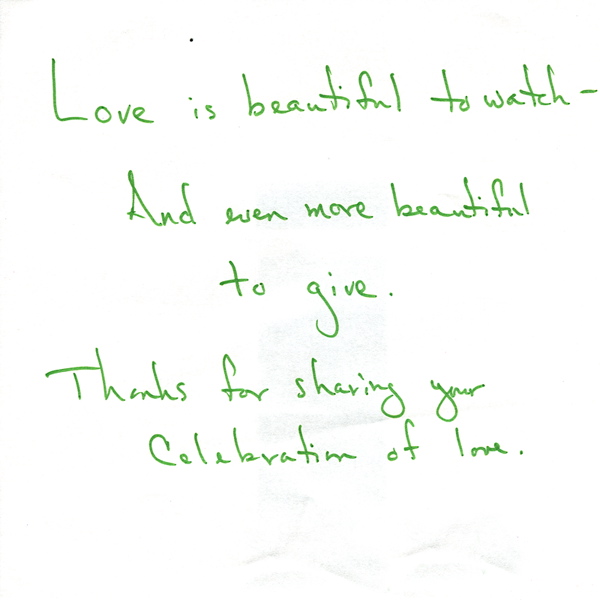 Love is beautiful to watch -
And even more beautiful
to give.
Thanks for sharing your
Celebration of love.